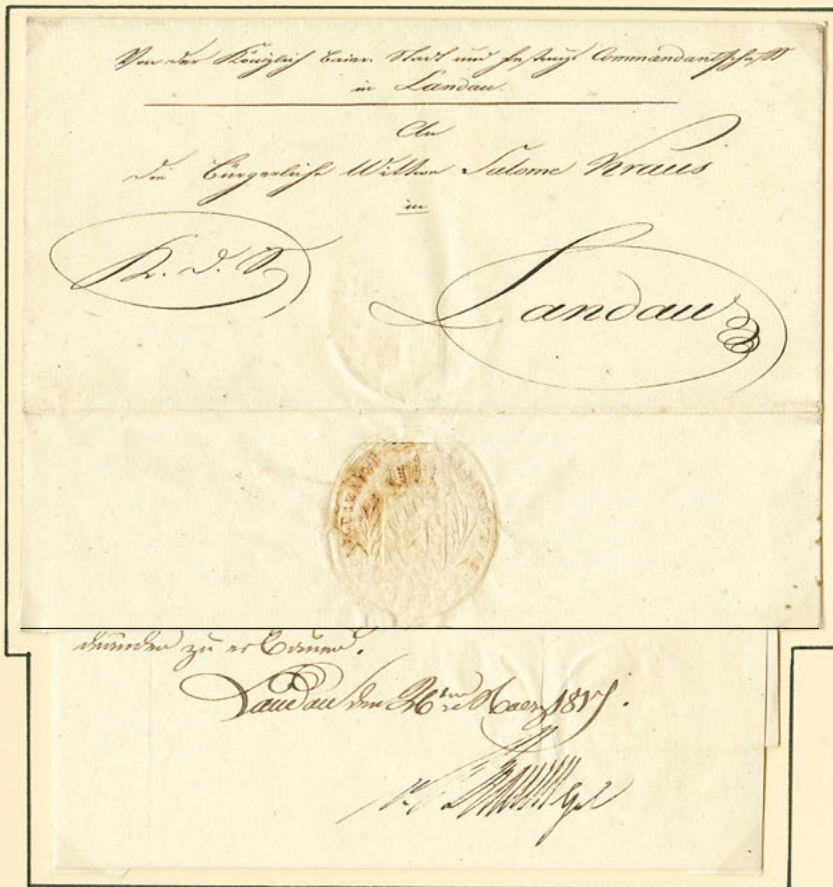 Von der Königlich baier. Stadt und Festungs Commandantschaft
in Landau.
An
die bürgerliche Wittwe Salome Kraus
in
K. d. S.
Landau
zu erbauen.
Landau den 26ten Maerz